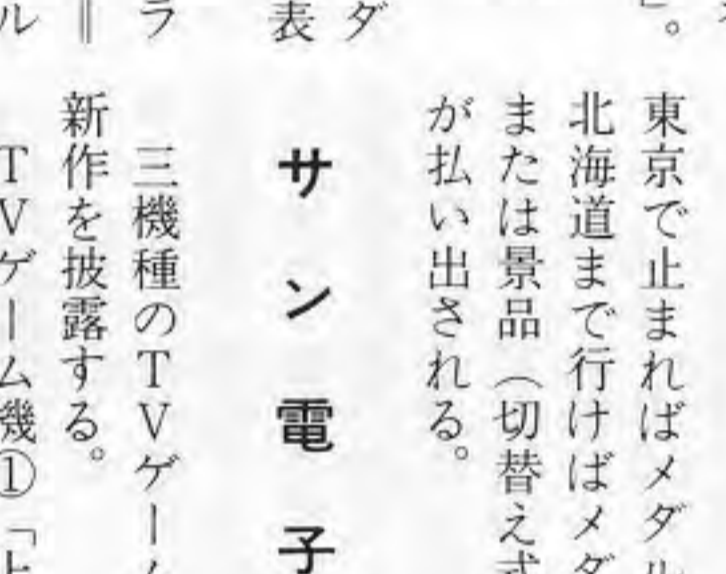 」。
東京で止まればメダル
北海道まで行けばメダ
または景品（切替え式
が払い出される。
ダ
表
サン電子
ラ
三機種のTVゲーム
＝
新作を披露する。
ル
TVゲーム機①「上